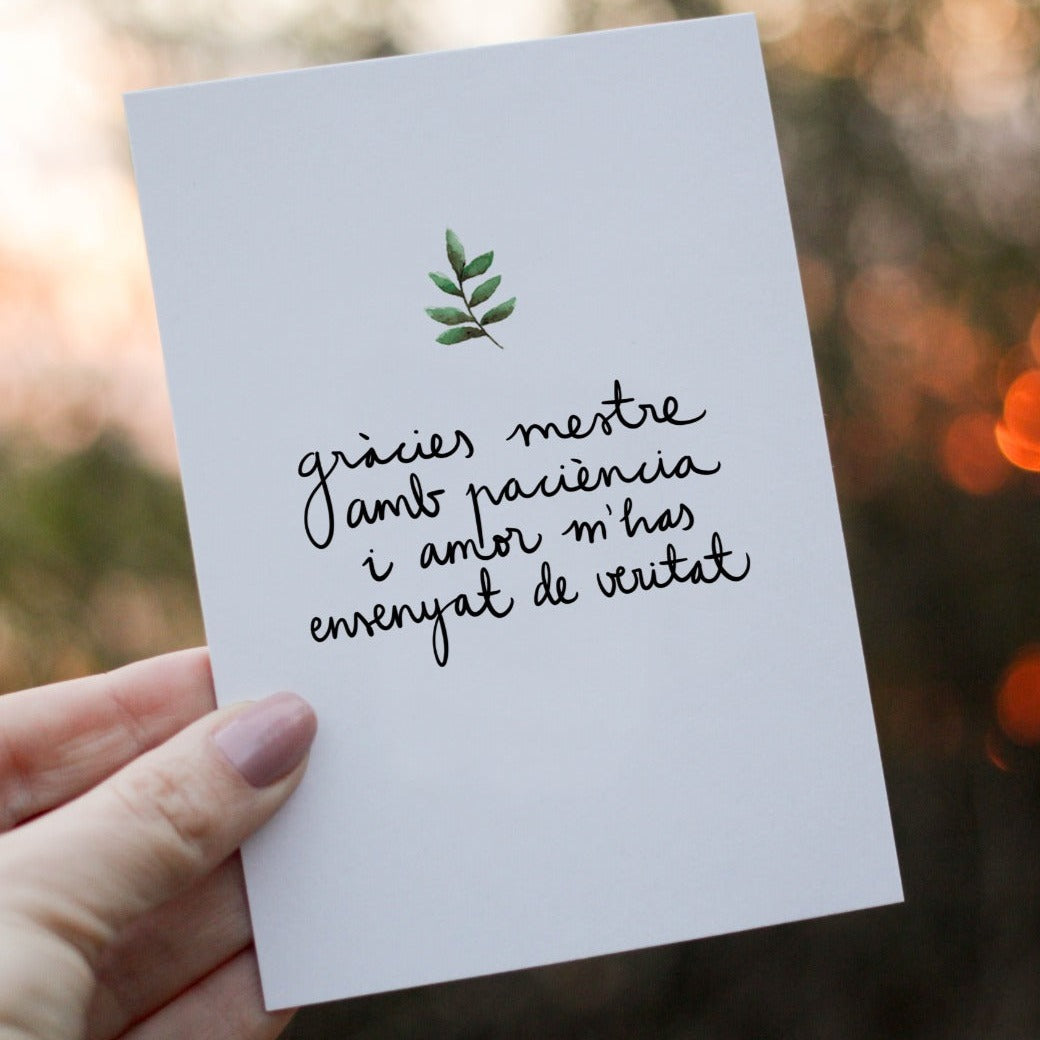 gràcies mestre
amb paciència
i amor m'has
ensenyat de veritat